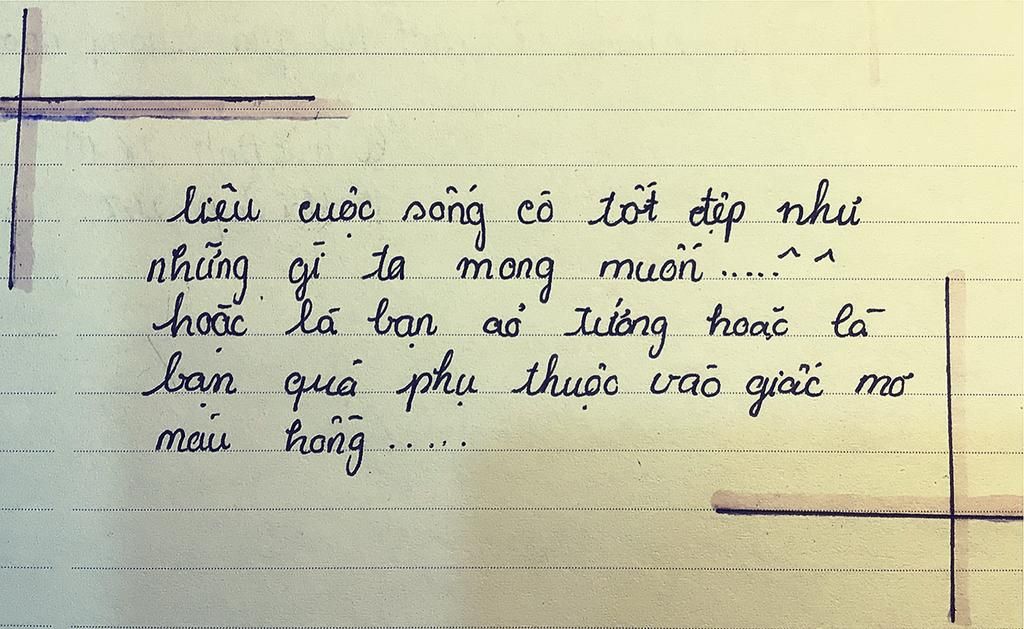 liệu cuộc sống có tốt đẹp như
những gì ta mong muốn.....^ ^
hoặc là bạn ảo tưởng hoặc là
bạn quá phụ thuộc vào giấc mơ
màu hồng.....